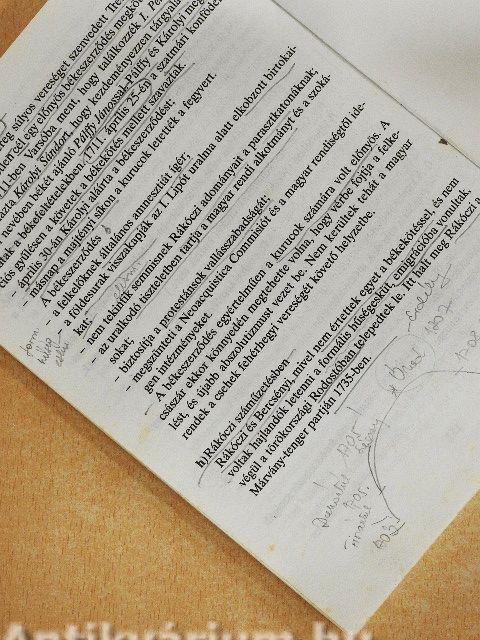 reg súlyos vereséget szenvedett Tre
lehercel egy előnyös békeszerződés megkö
1711-ben Varsóba ment, hogy találkozzék I. Pé
Károlyi Sándort, hogy kezdeményezzen tárgyalá
nevében békét ajánló Pálffy Jánossal. Pálffy és Károlyi meg
tak a békefeltételekben, 1711. április 25-én a szatmári konföde
ciós gyűlésen a követek a békekötés mellett szavaztak,
április 30-án Károlyi aláírta a békeszerződést;
másnap a majtényi síkon a kurucok letették a fegyvert.
A békeszerződés
– a felkelőknek általános amnesztiát ígér,
– a földesurak visszakapják az I. Lipót uralma alatt elkobzott birtokai-
kat,
– nem tekintik semmisnek Rákóczi adományait a parasztkatonáknak,
– az uralkodó tiszteletben tartja a magyar rendi alkotmányt és a szoká-
sokat,
– biztosítja a protestánsok vallásszabadságát;
– megszünteti a Neoacquistica Commisiót és a magyar rendiségtől ide-
gen intézményeket.
– A békeszerződés egyértelműen a kurucok számára volt előnyös. A
császár ekkor könnyedén megtehette volna, hogy vérbe fojtja a felke-
lést, és újabb abszolutizmust vezet be. Nem kerültek tehát a magyar
rendek a csehek fehérhegyi vereségét követő helyzetbe.
h) Rákóczi száműzetésben
Rákóczi és Bercsényi, mivel nem értettek egyet a békekötéssel, és nem
voltak hajlandók letenni a formális hűségesküt, emigrációba vonultak,
végül a törökországi Rodostóban telepedtek le. Itt halt meg Rákóczi a
Márvány-tenger partján 1735-ben.
Erdély
1702
1705
1703
Antikvárium.hu